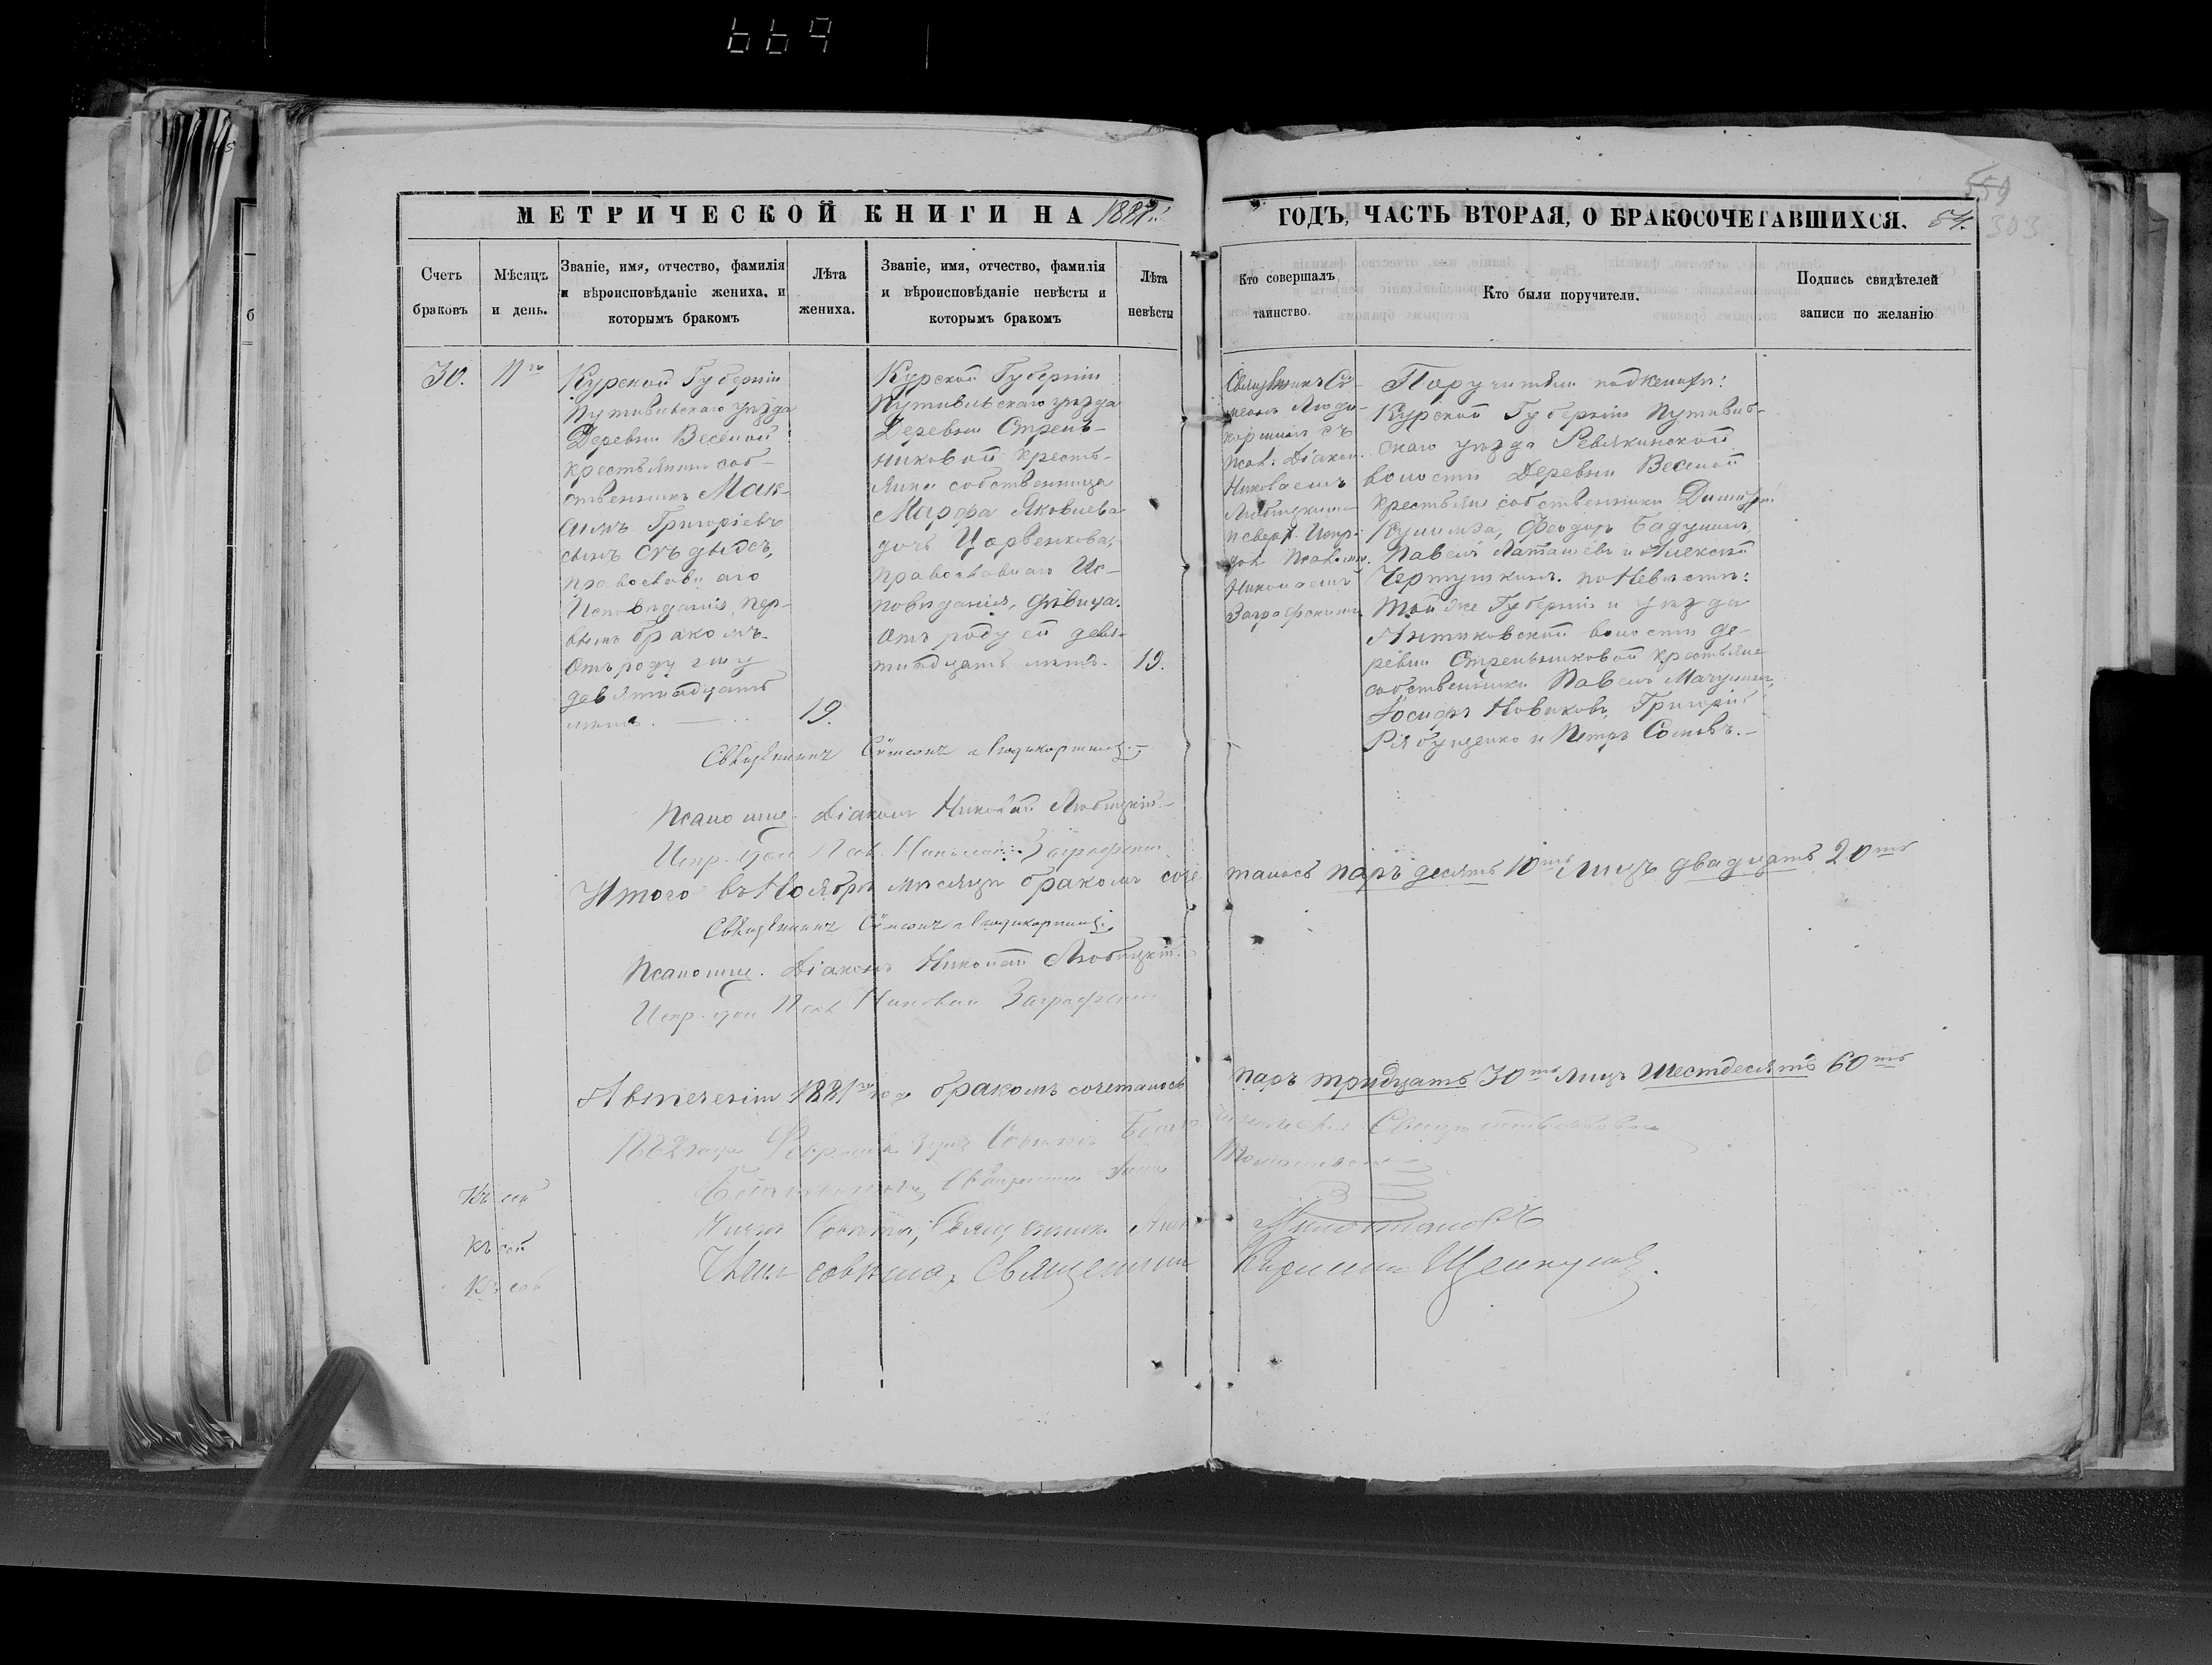 669
МЕТРИЧЕСКОЙ КНИГИ НА 1881й
ГОДЪ, ЧАСТЬ ВТОРАЯ, О БРАКОСОЧЕТАВШИХСЯ.
54.
559
303
Счетъ браковъ
Мѣсяцъ и день.
Званіе, имя, отчество, фамилія
и вѣроисповѣданіе жениха, и
которымъ бракомъ
Лѣта жениха.
Званіе, имя, отчество, фамилія
и вѣроисповѣданіе невѣсты и
которымъ бракомъ
Лѣта невѣсты
Кто совершалъ таинство.
Кто были поручители.
Подпись свидѣтелей
записи по желанію
30.
11го
Курской Губерніи
Путивльскаго уѣзда
Деревни Веселой
крестьянинъ соб-
ственникъ Мак-
симъ Григоріевъ
сынъ
православнаго
Исповѣданія, пер-
вымъ бракомъ.
Отъ роду ему
девятнадцать
лѣтъ.
19.
Курской Губерніи
Путивльскаго уѣзда
Деревни Стрель-
никовой кресть-
янка собственница
Марфа Яковлева
дочь Царвенкова,
православнаго Ис-
повѣданія, дѣвица.
Отъ роду ей девя-
тнадцать лѣтъ.
19.
Священникъ Си-
меонъ Люди-
коршинъ съ
псал. Діакон.
Николаемъ
Любицкимъ
и сверх. Испр.
дол. Псаломщ.
Николаемъ
Заграфскимъ
Поручители по женихѣ:
Курской Губерніи Путивль-
скаго уѣзда Ревякинской
волости Деревни Веселой
крестьяне собственники Димитрій
Феодоръ Бадунинъ,
Павелъ Латашевъ и Алексѣй
Чертушкинъ. по Невѣстѣ:
Той же Губерніи и уѣзда
волости де-
ревни Стрельниковой крестьяне
собственники Павелъ
Іосифъ Новиковъ, Григорій
Рябущенко и Петръ Сомовъ.-
Священникъ Симеонъ
Псаломщ. Діаконъ Николай Любицкій.-
Испр. дол. Псал. Николай Заграфскій
Итого въ Ноябрѣ мѣсяцѣ бракомъ соче-
талось паръ десять 10ть лицъ двадцать 20ть
Священникъ Симеонъ
Псаломщ. Діаконъ Николай Любицкій.
Испр. дол. Псал. Николай Заграфскій
А втеченіи 1881го года бракомъ сочеталось
паръ тридцать 30ть лицъ шестдесятъ 60ть
1882 года Февраля 3 дня
Къ сей
Къ сей
Къ сей
Членъ Совѣта, Священникъ
Членъ совѣта, Священникъ